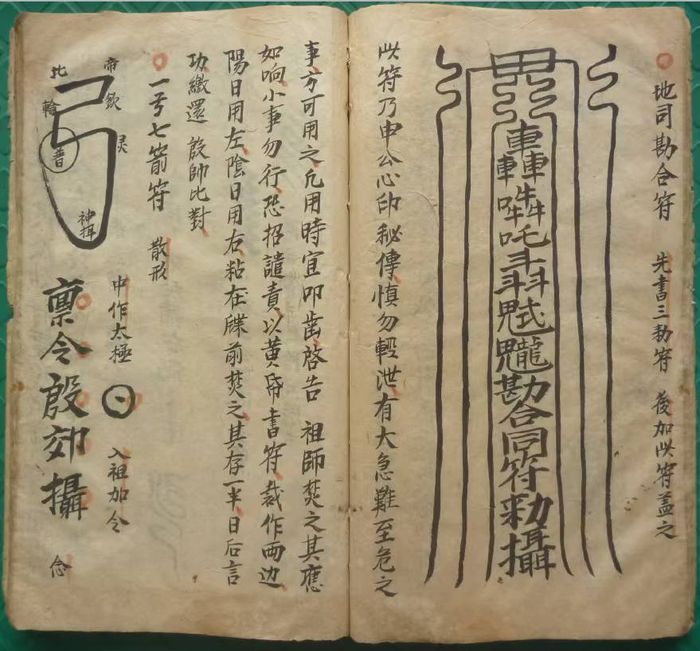 地司勘合符 先書三勅符 後加此符蓋之
轟犇吽吒
勘合同符勅攝
此符乃申公心印秘傳慎勿輕泄有大急難至危之
事方可用之凡用時宜叩齒啓告 祖師焚之其應
如响小事勿行恐招譴責以黃帋書符裁作兩边
陽日用左陰日用右粘在牒前焚之其存一半日后言
功繳還 殷帥比對
一号七箭符 散形
帝欽
灵
北
輪
普
中作太極 入祖加令
禀令殷郊攝 念